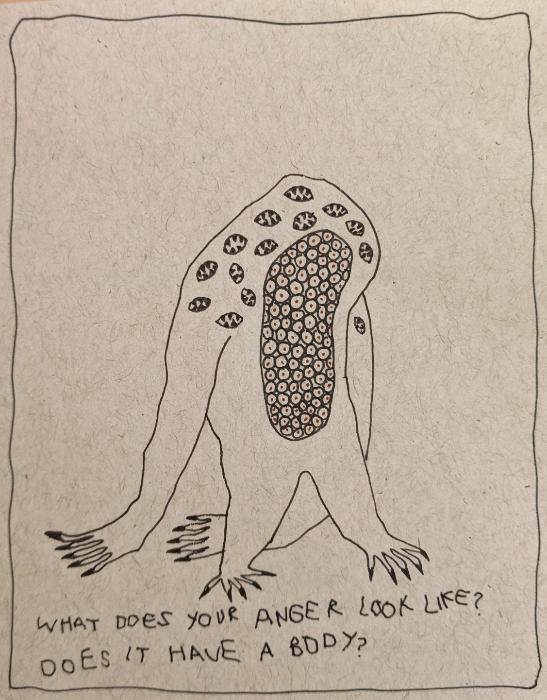 WHAT DOES YOUR ANGER LOOK LIKE?
DOES IT HAVE A BODY?